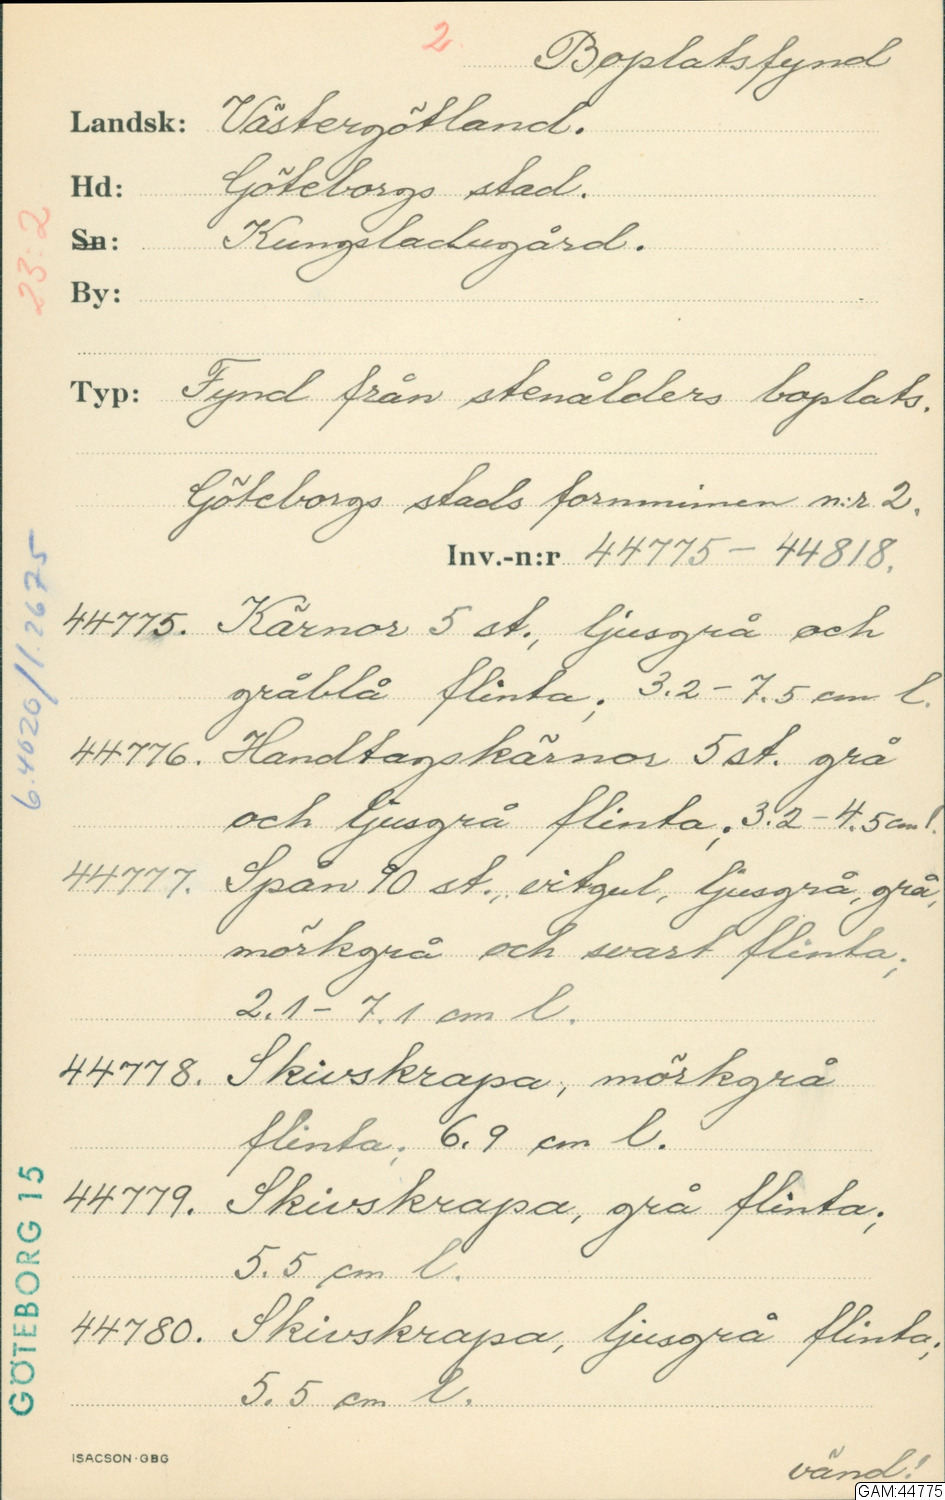 2.
Boplatsfynd
Landsk: Västergötland.
Hd: Göteborgs stad.
Sn: Kungsladugård.
By:
Typ: Fynd från stenålders boplats.
Göteborgs stads fornminnen n:r 2.
Inv.-n:r 44775 – 44818.
44775. Kärnor 5 st., ljusgrå och
gråblå flinta; 3.2 – 7.5 cm l.
44776. Handtagskärnor 5 st. grå
och ljusgrå flinta; 3.2 – 4.5 cm l.
44777. Spån 90 st., vitgul, ljusgrå, grå,
mörkgrå och svart flinta;
2.1 – 7.1 cm l.
44778. Skivskrapa, mörkgrå
flinta; 6.9 cm l.
44779. Skivskrapa, grå flinta;
5.5 cm l.
44780. Skivskrapa, ljusgrå flinta;
5.5 cm l.
ISACSON·GBG
vänd!
GAM:44775
23:2
6.4020/1.2675
GÖTEBORG 15